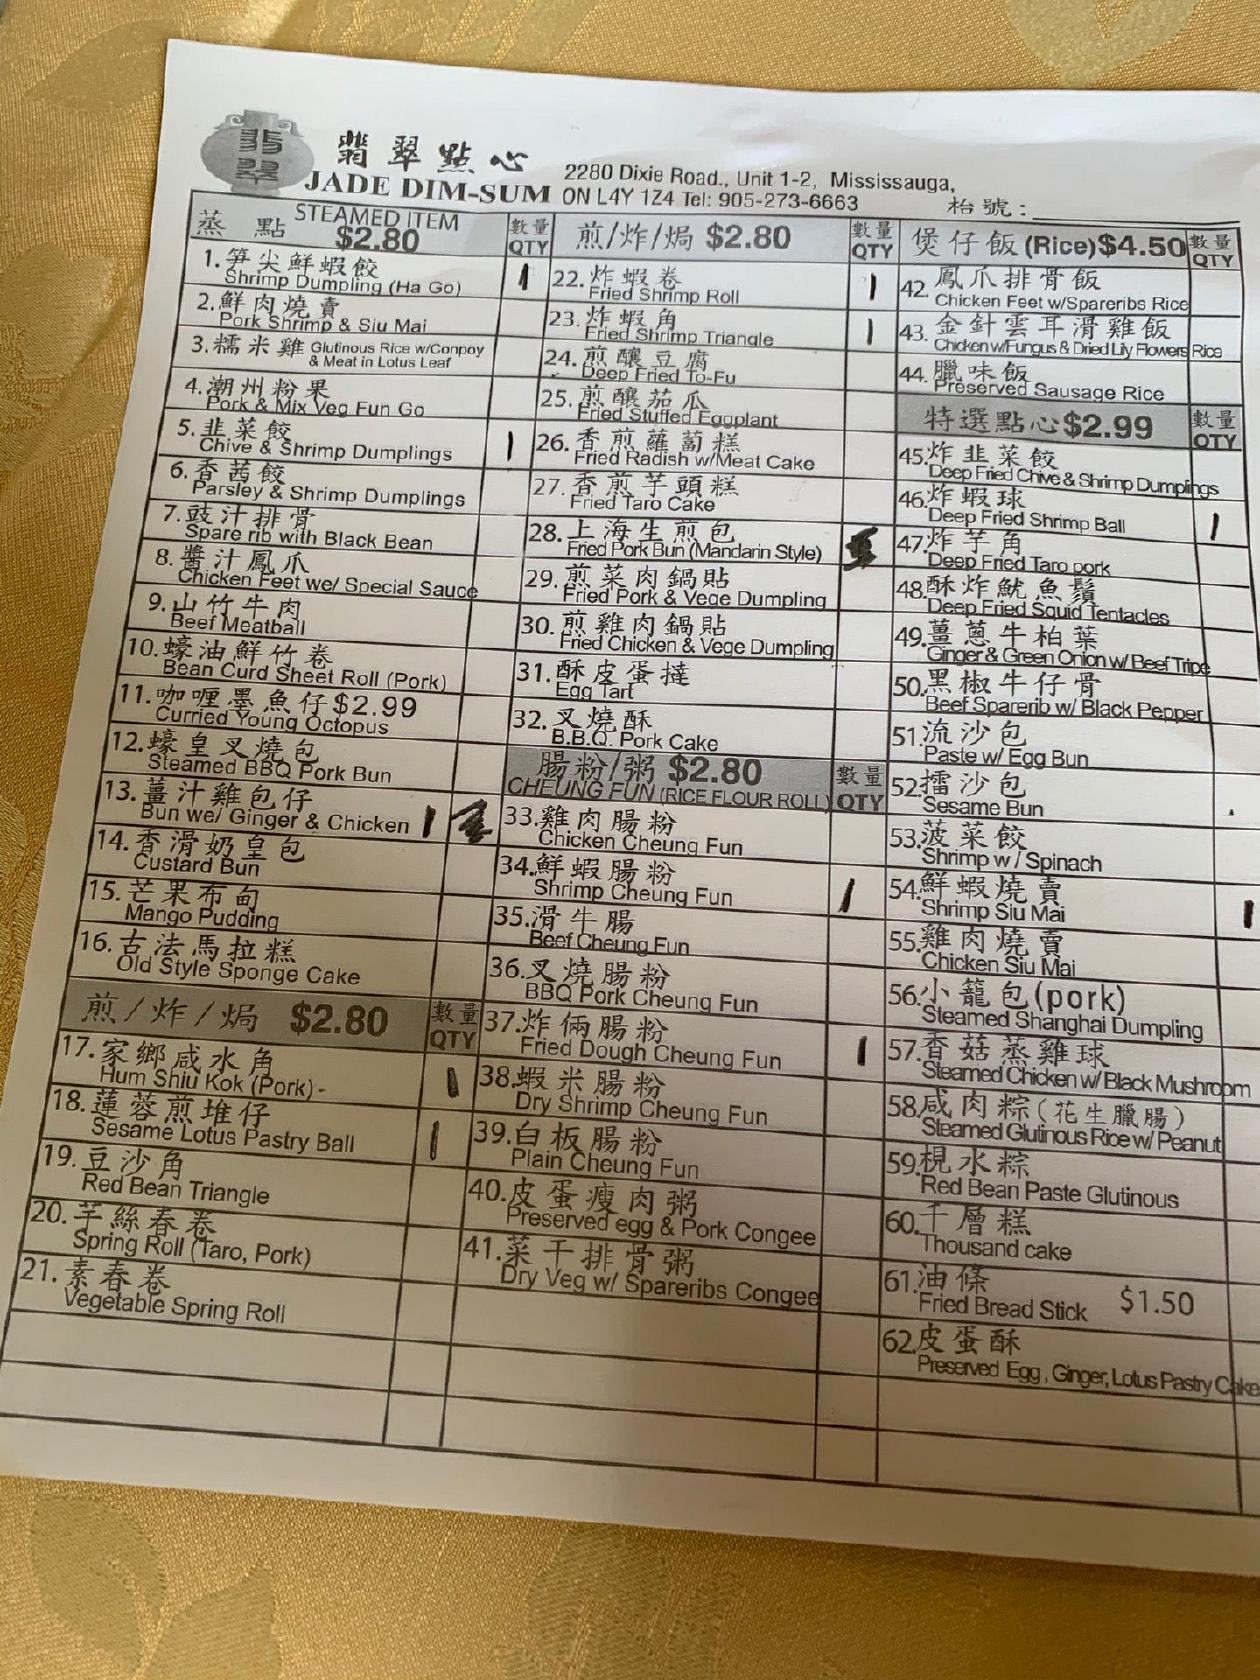 翡翠
翡翠點心
JADE DIM-SUM
2280 Dixie Road., Unit 1-2, Mississauga,
ON L4Y 1Z4 Tel: 905-273-6663
枱號:
蒸點 STEAMED ITEM $2.80 數量 QTY
1.笋尖鮮蝦餃 1
Shrimp Dumpling (Ha Go)
2.鮮肉燒賣
Pork Shrimp & Siu Mai
3.糯米雞 Glutinous Rice w/Conpoy
& Meat in Lotus Leaf
4.潮州粉果
Pork & Mix Veg Fun Go
5.韭菜餃 1
Chive & Shrimp Dumplings
6.香茜餃
Parsley & Shrimp Dumplings
7.豉汁排骨
Spare rib with Black Bean
8.醬汁鳳爪
Chicken Feet we/ Special Sauce
9.山竹牛肉
Beef Meatball
10.蠔油鮮竹卷
Bean Curd Sheet Roll (Pork)
11.咖喱墨魚仔$2.99
Curried Young Octopus
12.蠔皇叉燒包
Steamed BBQ Pork Bun
13.薑汁雞包仔
Bun we/ Ginger & Chicken 1
14.香滑奶皇包
Custard Bun
15.芒果布甸
Mango Pudding
16.古法馬拉糕
Old Style Sponge Cake
煎/炸/焗 $2.80 數量 QTY
17.家鄉咸水角 1
Hum Shiu Kok (Pork)-
18.蓮蓉煎堆仔 1
Sesame Lotus Pastry Ball
19.豆沙角
Red Bean Triangle
20.芋絲春卷
Spring Roll (Taro, Pork)
21.素春卷
Vegetable Spring Roll
煎/炸/焗 $2.80 數量 QTY
22.炸蝦卷 1
Fried Shrimp Roll
23.炸蝦角 1
Fried Shrimp Triangle
24.煎釀豆腐
Deep Fried To-Fu
25.煎釀茄瓜
Fried Stuffed Eggplant
26.香煎蘿蔔糕
Fried Radish w/Meat Cake
27.香煎芋頭糕
Fried Taro Cake
28.上海生煎包
Fried Pork Bun (Mandarin Style)
29.煎菜肉鍋貼
Fried Pork & Vege Dumpling
30.煎雞肉鍋貼
Fried Chicken & Vege Dumpling
31.酥皮蛋撻
Egg Tart
32.叉燒酥
B.B.Q. Pork Cake
腸粉/粥 $2.80 數量
CHEUNG FUN (RICE FLOUR ROLL) QTY
33.雞肉腸粉
Chicken Cheung Fun
34.鮮蝦腸粉 1
Shrimp Cheung Fun
35.滑牛腸
Beef Cheung Fun
36.叉燒腸粉
BBQ Pork Cheung Fun
37.炸倆腸粉 1
Fried Dough Cheung Fun
38.蝦米腸粉
Dry Shrimp Cheung Fun
39.白板腸粉
Plain Cheung Fun
40.皮蛋瘦肉粥
Preserved egg & Pork Congee
41.菜干排骨粥
Dry Veg w/ Spareribs Congee
煲仔飯(Rice)$4.50 數量 QTY
42.鳳爪排骨飯
Chicken Feet w/Spareribs Rice
43.金針雲耳滑雞飯
Chicken w/Fungus & Dried Lily Flowers Rice
44.臘味飯
Preserved Sausage Rice
特選點心$2.99 數量 QTY
45.炸韭菜餃
Deep Fried Chive & Shrimp Dumplings
46.炸蝦球 1
Deep Fried Shrimp Ball
47.炸芋角
Deep Fried Taro pork
48.酥炸魷魚鬚
Deep Fried Squid Tentacles
49.薑蔥牛柏葉
Ginger & Green Onion w/ Beef Tripe
50.黑椒牛仔骨
Beef Sparerib w/ Black Pepper
51.流沙包
Paste w/ Egg Bun
52.擂沙包
Sesame Bun
53.菠菜餃
Shrimp w/ Spinach
54.鮮蝦燒賣 1
Shrimp Siu Mai
55.雞肉燒賣
Chicken Siu Mai
56.小籠包(pork)
Steamed Shanghai Dumpling
57.香菇蒸雞球
Steamed Chicken w/ Black Mushroom
58.咸肉粽(花生臘腸)
Steamed Glutinous Rice w/ Peanut
59.梘水粽
Red Bean Paste Glutinous
60.千層糕
Thousand cake
61.油條
Fried Bread Stick $1.50
62.皮蛋酥
Preserved Egg, Ginger, Lotus Pastry Cake